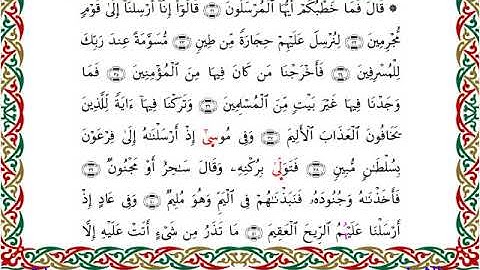 ۞ قَالَ فَمَا خَطْبُكُمْ أَيُّهَا ٱلْمُرْسَلُونَ قَالُوٓا۟ إِنَّآ أُرْسِلْنَآ إِلَىٰ قَوْمٍ
مُّجْرِمِينَ لِنُرْسِلَ عَلَيْهِمْ حِجَارَةً مِّن طِينٍ مُّسَوَّمَةً عِندَ رَبِّكَ
لِلْمُسْرِفِينَ فَأَخْرَجْنَا مَن كَانَ فِيهَا مِنَ ٱلْمُؤْمِنِينَ فَمَا
وَجَدْنَا فِيهَا غَيْرَ بَيْتٍ مِّنَ ٱلْمُسْلِمِينَ وَتَرَكْنَا فِيهَآ ءَايَةً لِّلَّذِينَ
يَخَافُونَ ٱلْعَذَابَ ٱلْأَلِيمَ وَفِى مُوسَىٰٓ إِذْ أَرْسَلْنَـٰهُ إِلَىٰ فِرْعَوْنَ
بِسُلْطَـٰنٍ مُّبِينٍ فَتَوَلَّىٰ بِرُكْنِهِۦ وَقَالَ سَـٰحِرٌ أَوْ مَجْنُونٌ
فَأَخَذْنَـٰهُ وَجُنُودَهُۥ فَنَبَذْنَـٰهُمْ فِى ٱلْيَمِّ وَهُوَ مُلِيمٌ وَفِى عَادٍ إِذْ
أَرْسَلْنَا عَلَيْهُمُ ٱلرِّيحَ ٱلْعَقِيمَ مَا تَذَرُ مِن شَىْءٍ أَتَتْ عَلَيْهِ إِلَّا